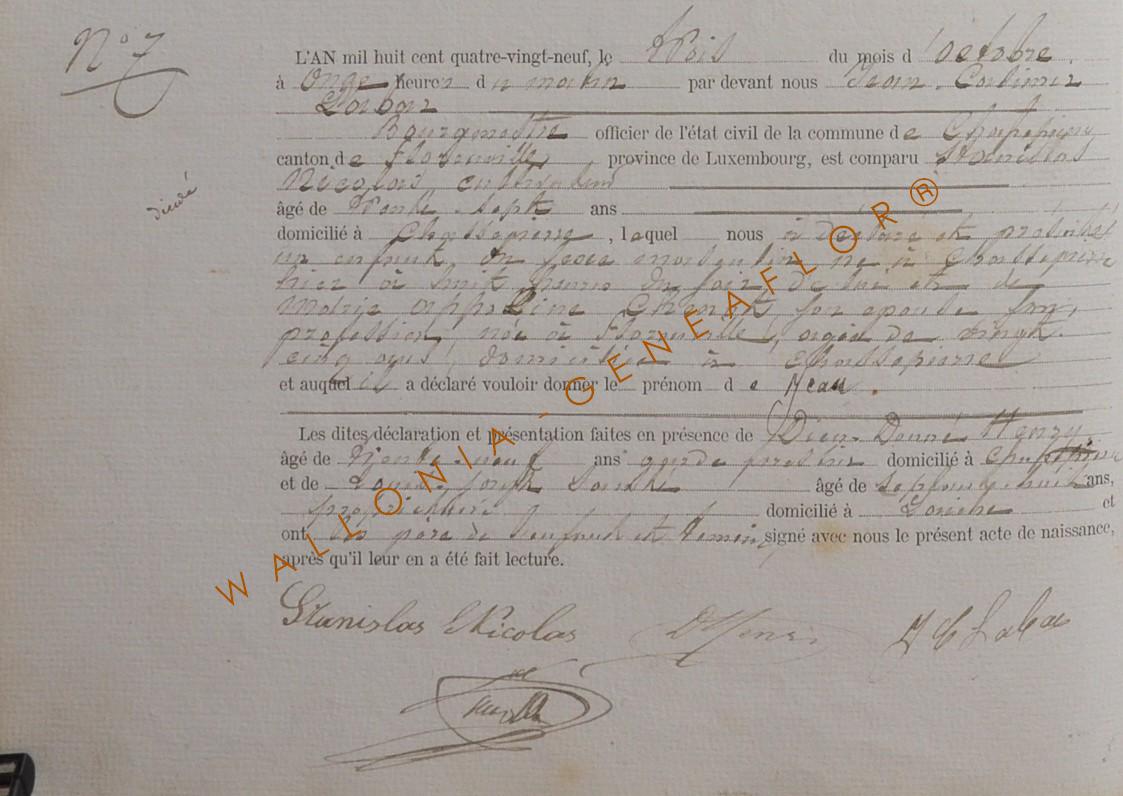 N° 7
L'AN mil huit cent quatre-vingt-neuf, le trois du mois d'octobre
à onze heures du matin par devant nous Jean
Bourgmestre officier de l'état civil de la commune de Chassepierre
canton de Florenville province de Luxembourg, est comparu Stanislas
Nicolas cultivateur
âgé de trente-sept ans
domicilié à Chassepierre, lequel nous a déclaré et présenté
un enfant du sexe masculin né à Chassepierre
hier à huit heures du soir, de lui et de
Marie son épouse sans
profession, née à Florenville, âgée de vingt
cinq ans, domiciliée à Chassepierre
et auquel il a déclaré vouloir donner le prénom de Jean.
Les dites déclaration et présentation faites en présence de Dieu-Donné Henry
âgé de trente-neuf ans garde forestier domicilié à Chassepierre
et de Louis Joseph âgé de septante-huit ans,
propriétaire domicilié à et
ont les père de l'enfant et témoins signé avec nous le présent acte de naissance,
après qu'il leur en a été fait lecture.
Stanislas Nicolas
WALLONIA-GENEAFLOR®